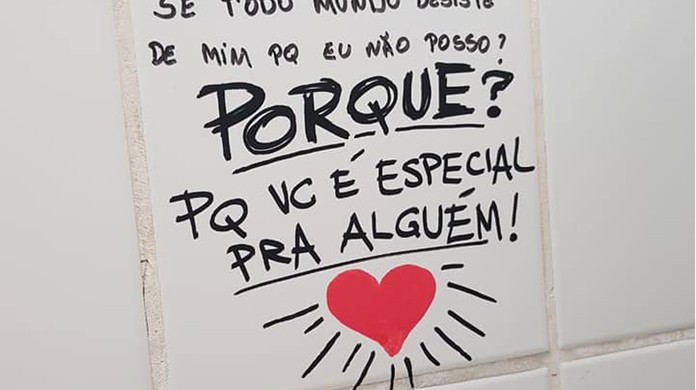 SE TODO MUNDO DESISTE
DE MIM PQ EU NÃO POSSO?
PORQUE?
PQ VC É ESPECIAL
PRA ALGUÉM!